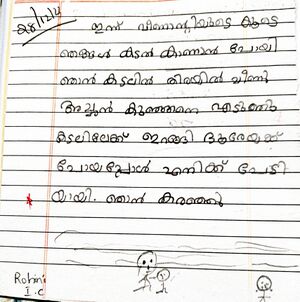 28/12/11
ഇന്ന് വീണാന്റിയുടെ കൂടെ
ഞങ്ങൾ കടൽ കാണാൻ പോയി
ഞാൻ കടലിൽ തിരയിൽ വീണു
അച്ഛൻ കുഞ്ഞനെ എടുത്തു
കടലിലേക്ക് ഇറങ്ങി ദൂരേയ്ക്ക്
പോയപ്പോൾ എനിക്ക് പേടി
യായി. ഞാൻ കരഞ്ഞു
Rohini
I.C